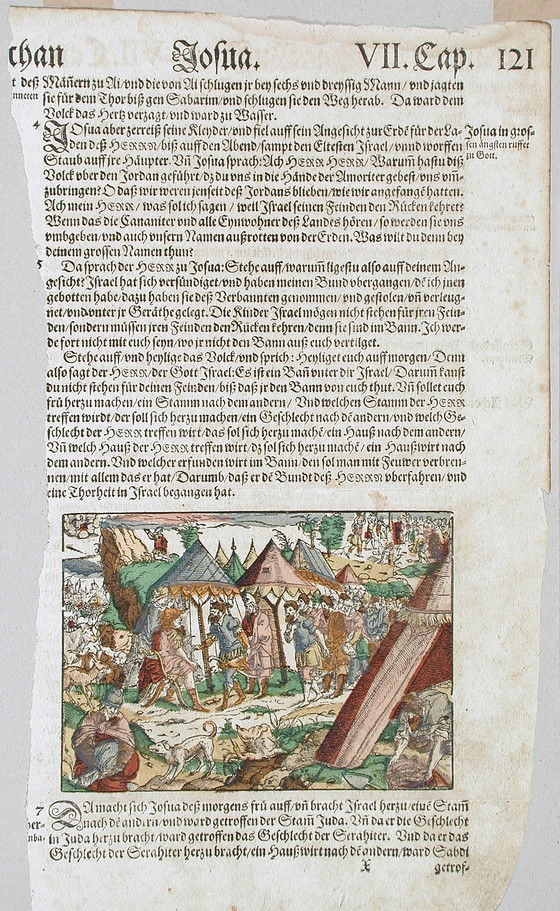 chan Josua. VII. Cap. 121
t deß Mäñern zu Ai/vnd die von Ai schlugen jr bey sechs vnd dreyssig Mann/vnd jagten
nneten sie für dem Thor biß gen Sabarim/vnd schlugen sie den Weg herab. Da ward dem
Volck das Hertz verzagt/vnd ward zu Wasser.
4 JOsua aber zerreiß seine Kleyder/vnd fiel auff sein Angesicht zur Erde für der La- Josua in gros-
den deß HERRN/biß auff den Abend/sampt den Eltesten Israel/vnnd worffen sen ängsten ruffet
Staub auff jre Häupter. Vñ Josua sprach: Ach HERR HERR/Warum̃ hastu diß zu Gott.
Volck vber den Jordan geführt/dz du vns in die Hände der Amoriter gebest/vns vm̃-
zubringen? O daß wir weren jenseit deß Jordans blieben/wie wir angefangẽ hatten.
Ach mein HERR/was sol ich sagen/weil Israel seinen Feinden den Rücken kehret?
Wenn das die Cananiter vnd alle Eynwohner deß Landes hören/so werden sie vns
vmbgeben/vnd auch vnsern Namen außrotten von der Erden. Was wilt du denn bey
deinem grossen Namen thun?
5 Da sprach der HERR zu Josua: Stehe auff/warum̃ ligestu also auff deinem An-
gesicht? Israel hat sich versündiget/vnd haben meinen Bund vbergangen/dẽ ich jnen
gebotten habe/dazu haben sie deß Verbannten genommen/vnd gestolen/vñ verleug-
net/vnd vnter jr Geräthe gelegt. Die Kinder Israel mögen nicht stehen für jren Fein-
den/sondern müssen jren Feinden den Rücken kehren/denn sie sind im Bann. Ich wer-
de fort nicht mit euch seyn/wo jr nicht den Bann auß euch vertilget.
Stehe auff/vnd heylige das Volck/vnd sprich: Heyliget euch auff morgen/Denn
also sagt der HERR/der Gott Israel: Es ist ein Bañ vnter dir Israel/Darum̃ kanst
du nicht stehen für deinen Feinden/biß daß jr den Bann von euch thut. Vñ sollet euch
frü herzu machen/ein Stamm nach dem andern/Vnd welchen Stamm der HERR
treffen wirdt/der soll sich herzu machen/ein Geschlecht nach dẽ andern/vnd welch Ge-
schlecht der HERR treffen wirt/das sol sich herzu machẽ/ein Hauß nach dem andern/
Vñ welch Hauß der HERR treffen wirt/dz sol sich herzu machẽ/ein Haußwirt nach
dem andern. Vnd welcher erfunden wirt im Bann/den sol man mit Feuwer verbren-
nen/mit allem das er hat/Darumb/daß er dẽ Bundt deß HERRN vberfahren/vnd
eine Thorheit in Israel begangen hat.
7 DA macht sich Josua deß morgens frü auff/vñ bracht Israel herzu/einẽ Stam̃
her- nach dẽ andern/vnd ward getroffen der Stam̃ Juda. Vñ da er die Geschlecht
nba. in Juda herzu bracht/ward getroffen das Geschlecht der Serahiter. Vnd da er das
Geschlecht der Serahiter herzu bracht/ein Haußwirt nach dẽ andern/ward Sabdi
X getrof-